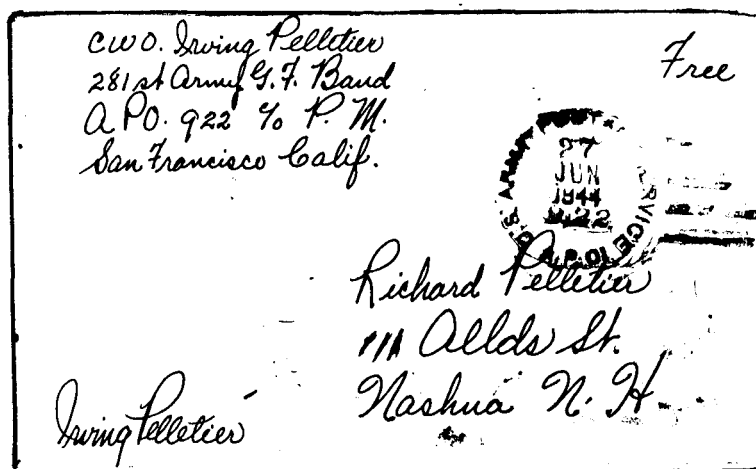 CWO. Irving Pelletier
281st Army G.F. Band
A PO. 922 c/o P. M.
San Francisco Calif.
Free
U.S. ARMY POSTAL SERVICE
27
JUN
1944
922
A.P.O.
Richard Pelletier
111 Allds St.
Nashua N. H.
Irving Pelletier